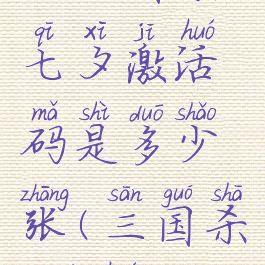 qī xī jī huó
七夕激活
mǎ shì duō shǎo
码是多少
zhāng sān guó shā
张(三国杀